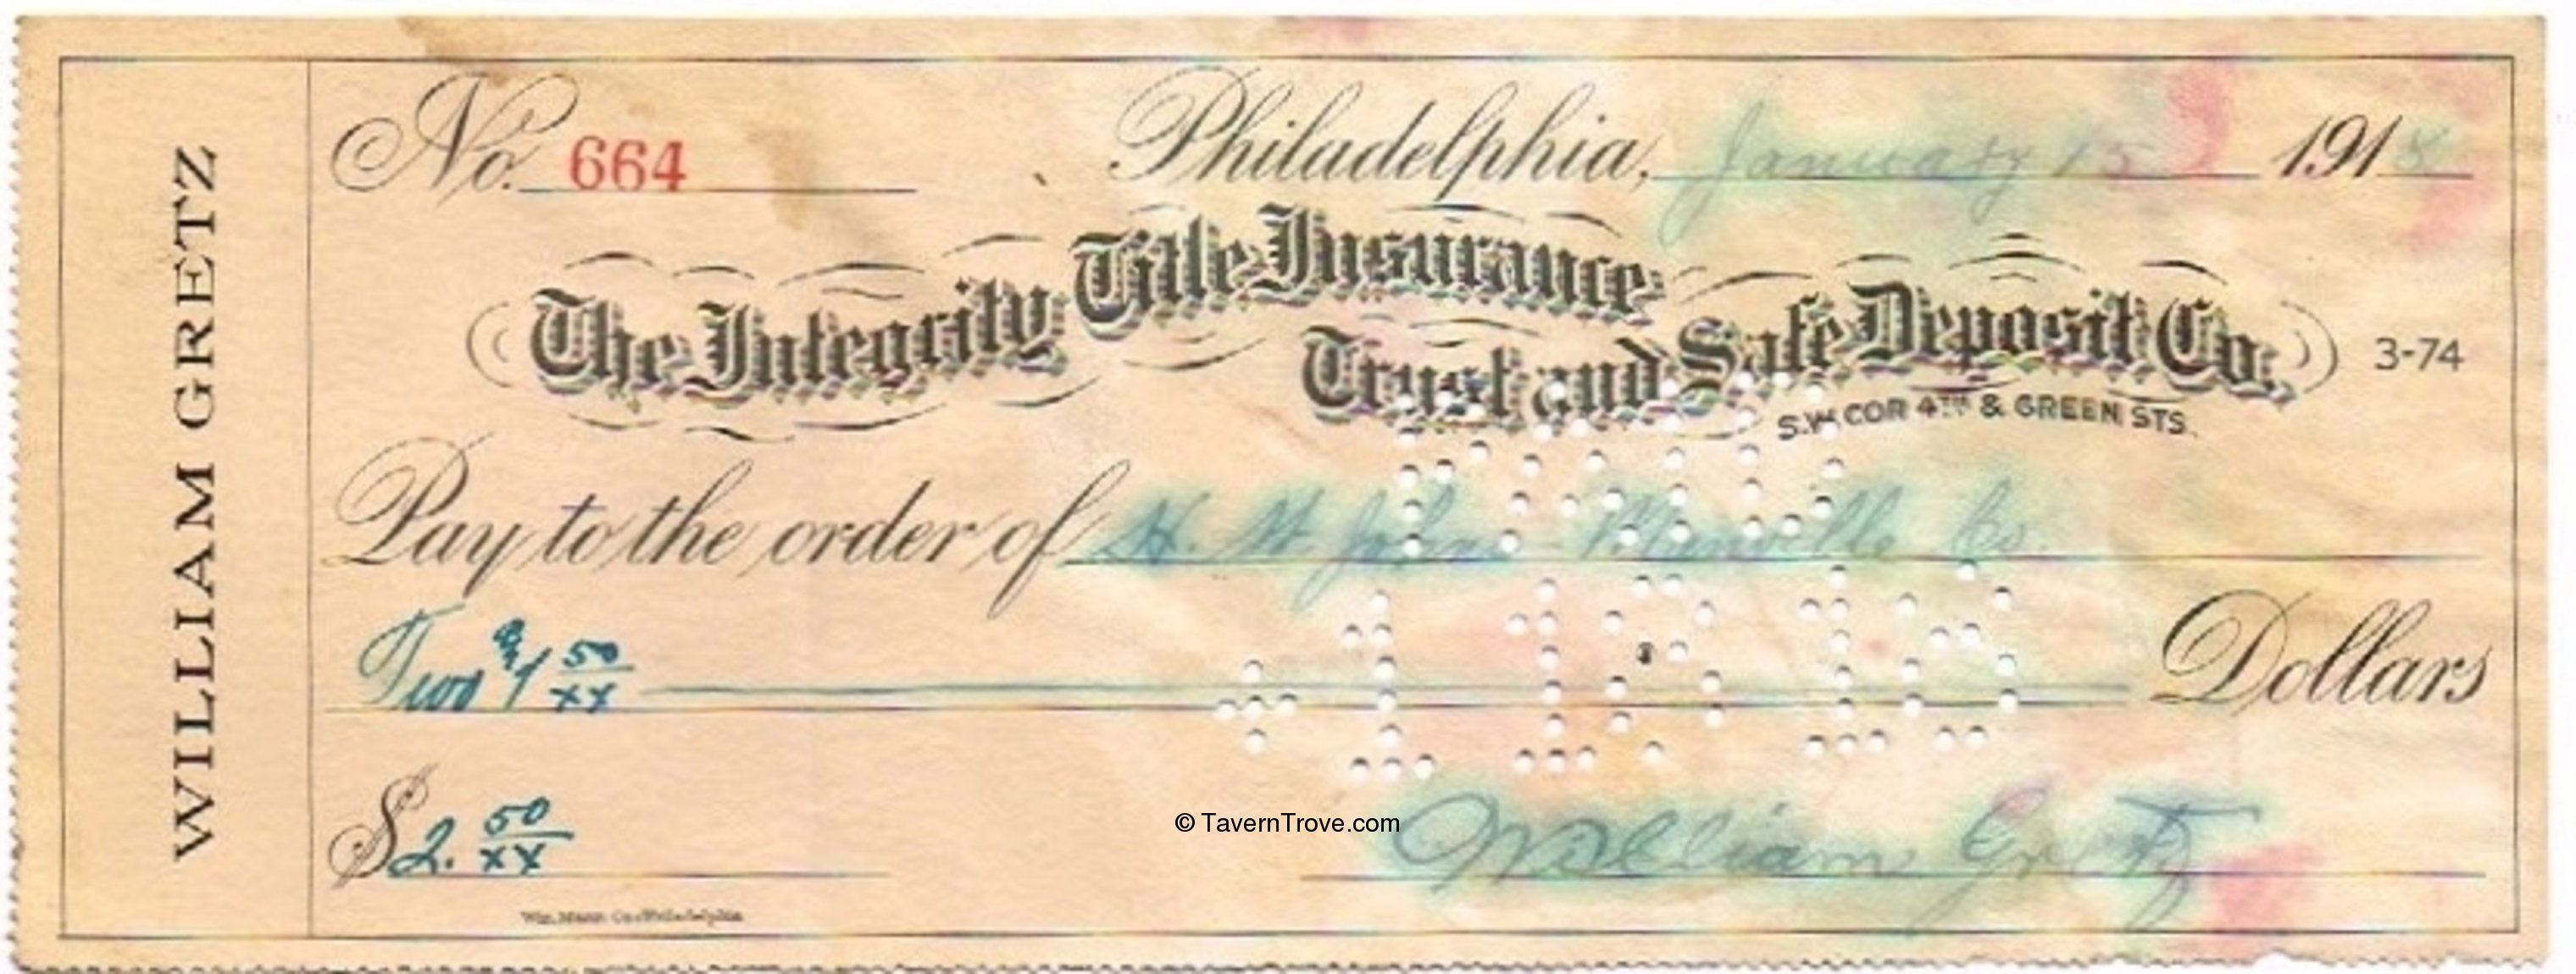 WILLIAM GRETZ
No. 664
Philadelphia, January 15 1918
The Integrity Title Insurance
Trust and Safe Deposit Co.
3-74
S.W. COR 4TH & GREEN STS.
Pay to the order of H. W. Johns-Manville Co
Two & 50/xx Dollars
$2. 50/xx
© TavernTrove.com
William Gretz
Wm. Mann Co. Philadelphia